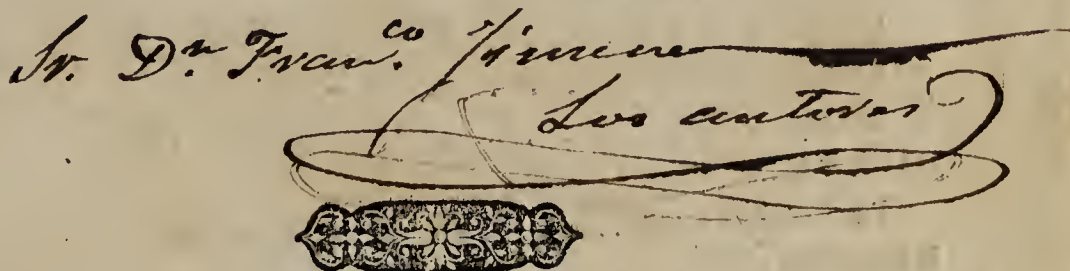 Sr. Dn Franco. Jimene
Los autores